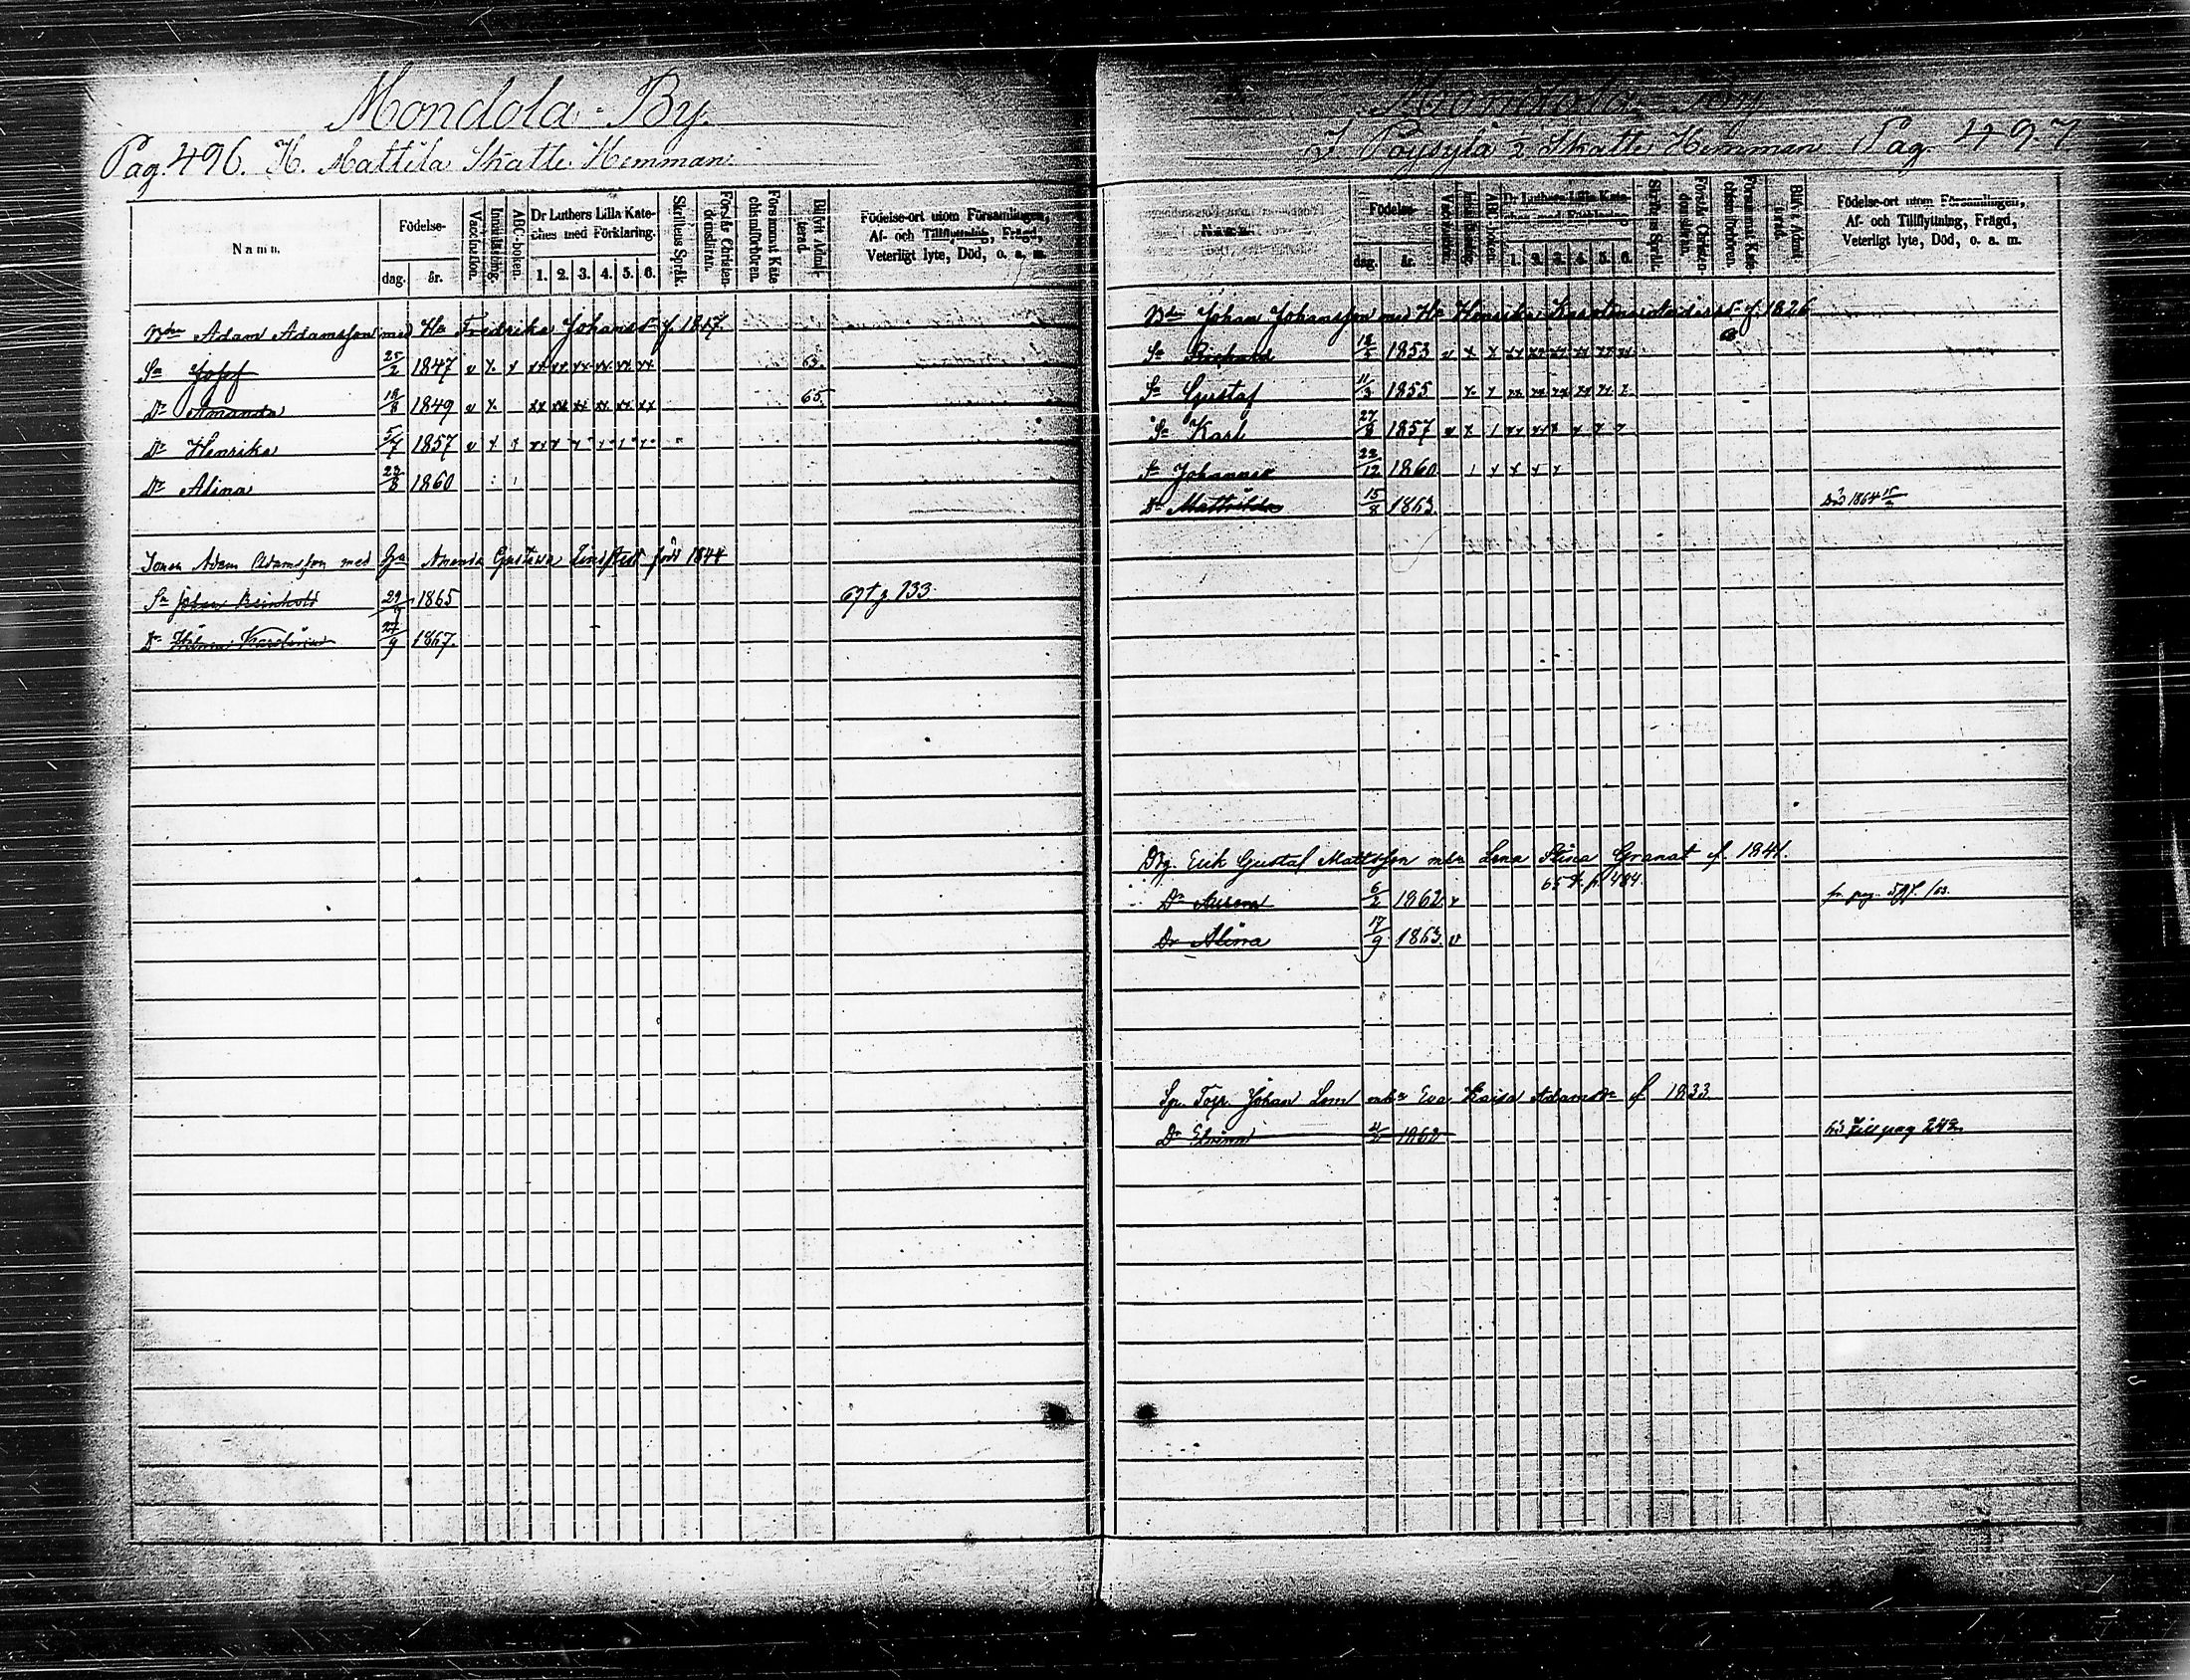 Mondola By.
Pag. 496. H. Mattila Skatte Hemman
Namn.
Födelse-
dag. år.
Vaccination.
Innanläsning.
ABC-boken.
Dr Luthers Lilla Kate-
ches med Förklaring.
1. 2. 3. 4. 5. 6.
Skriftens Språk.
Förstår Christen-
domsläran.
Försummat Kate-
chismiförhören.
Blifvit Admit-
terad.
Födelse-ort utom Församlingen,
Af- och Tillflyttning, Frägd,
Veterligt lyte, Död, o. a. m.
Adam Adamsson med Hu Fredrika Johansdr f. 1817.
Sn Josef 25/2 1847 v x x xx xx xx xx xx xx 63.
Dr Amanda 18/8 1849 v x xx xx xx xx xx xx 65.
Dr Henrika 5/7 1857 v x x
Dr Alina 23/8 1860
Sonen Adam Adamsson med Hu Amanda Gustava Lindstedt född 1844
Sn Johan Reinhold 29/7 1865 67 t. p. 733.
Dr Hilma Karolina 27/9 1867.
Mondola By
J Pöysylä 1/2 Skatte Hemman Pag. 497
Namn.
Födelse-
dag. år.
Vaccination.
Innanläsning.
ABC-boken.
Dr Luthers Lilla Kate-
ches med Förklaring.
1. 2. 3. 4. 5. 6.
Skriftens Språk.
Förstår Christen-
domsläran.
Försummat Kate-
chismiförhören.
Blifvit Admit-
terad.
Födelse-ort utom Församlingen,
Af- och Tillflyttning, Frägd,
Veterligt lyte, Död, o. a. m.
Johan Johansson med Hu Henrika f. 1826
Sn 18/5 1853 v x x xx xx xx xx xx xx
Sn Gustaf 11/3 1855 x x xx xx xx xx xx x
Sn Karl 27/8 1857 v x
Sn Johannes 22/12 1860
Dr Mathilda 15/8 1863 Död 1864
Erik Gustaf Mattsson mhu Lena Stina Granat f. 1841.
65 t. p. 484.
Dr Aurora 6/2 1862 v fr pag. /63.
Dr Alina 17/9 1863 v
Torp. Johan Lom mhu Eva Kaisa Adamsdr f 1833
Dr 1862 till pag 242